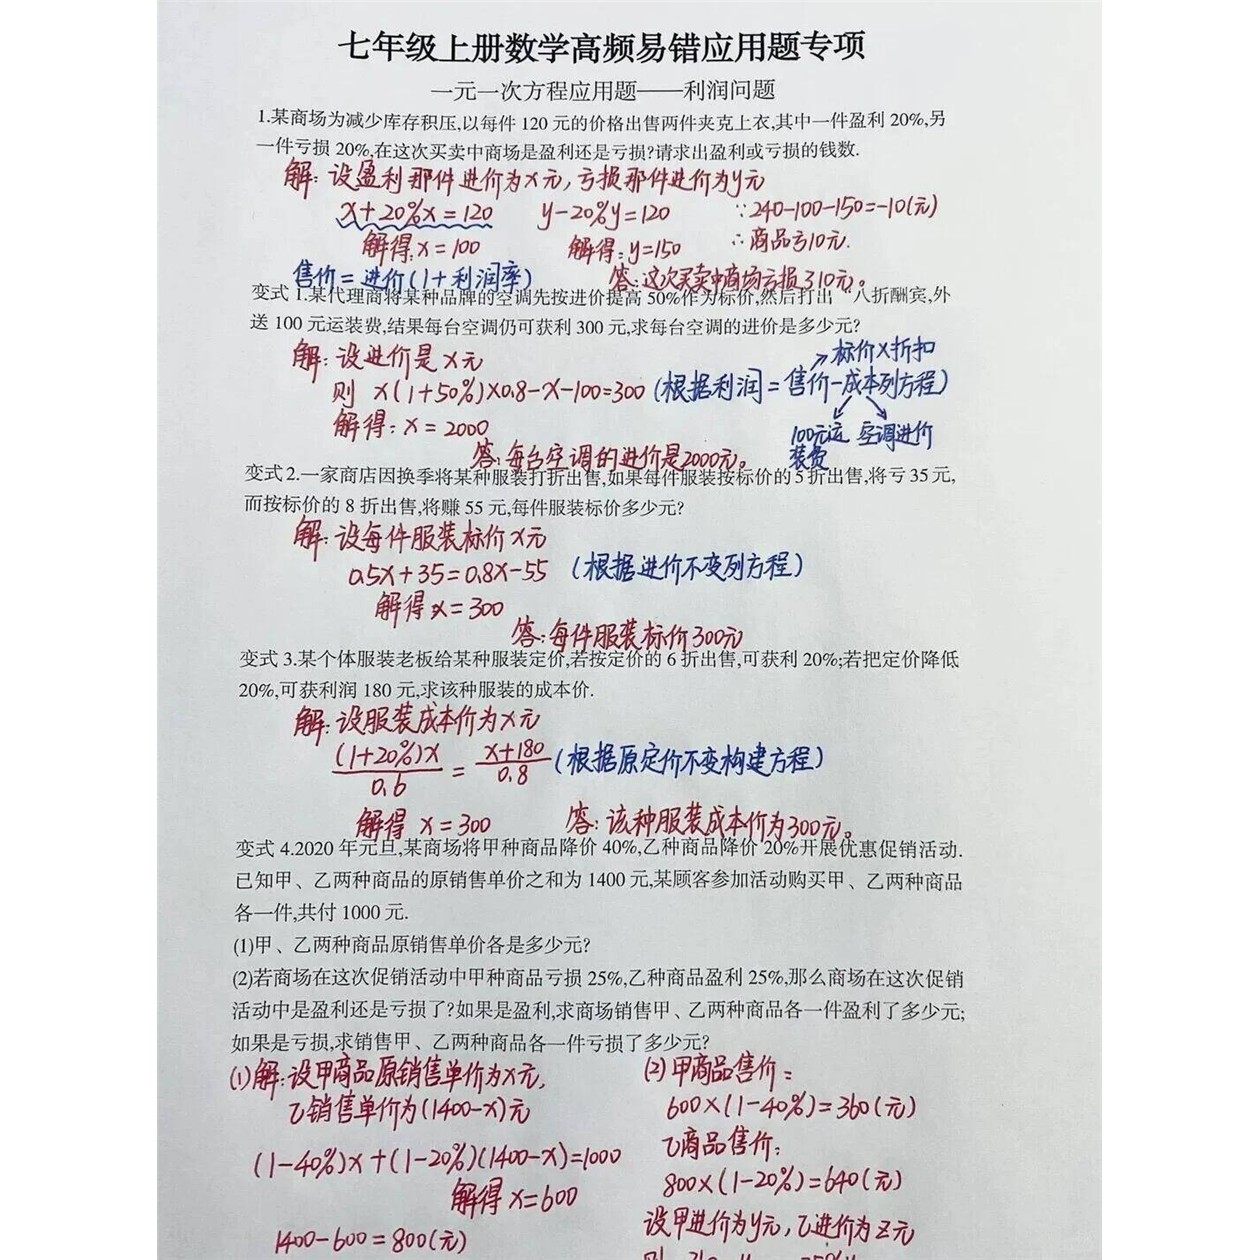 七年级上册数学高频易错应用题专项
一元一次方程应用题——利润问题
1.某商场为减少库存积压,以每件 120 元的价格出售两件夹克上衣,其中一件盈利 20%,另
一件亏损 20%,在这次买卖中商场是盈利还是亏损?请求出盈利或亏损的钱数.
解: 设盈利那件进价为x元, 亏损那件进价为y元
x+20%x=120 y-20%y=120 ∵240-100-150=-10(元)
解得:x=100 解得:y=150 ∴商品亏10元.
售价=进价(1+利润率) 答:这次买卖中商场亏损了10元。
变式 1.某代理商将某种品牌的空调先按进价提高 50%作为标价,然后打出 “八折酬宾,外
送 100 元运装费,结果每台空调仍可获利 300 元,求每台空调的进价是多少元?
解: 设进价是x元 标价x折扣
则 x(1+50%)x0.8-x-100=300 (根据利润=售价-成本列方程)
解得: x=2000 100元运装费 空调进价
答:每台空调的进价是2000元。
变式 2.一家商店因换季将某种服装打折出售,如果每件服装按标价的 5 折出售,将亏 35 元,
而按标价的 8 折出售,将赚 55 元,每件服装标价多少元?
解: 设每件服装标价x元
0.5x+35=0.8x-55 (根据进价不变列方程)
解得 x=300
答:每件服装标价300元
变式 3.某个体服装老板给某种服装定价,若按定价的 6 折出售,可获利 20%;若把定价降低
20%,可获利润 180 元,求该种服装的成本价.
解: 设服装成本价为x元
(1+20%)x/0.6 = x+180/0.8 (根据原定价不变构建方程)
解得 x=300 答: 该种服装成本价为300元。
变式 4.2020 年元旦,某商场将甲种商品降价 40%,乙种商品降价 20%开展优惠促销活动.
已知甲、乙两种商品的原销售单价之和为 1400 元,某顾客参加活动购买甲、乙两种商品
各一件,共付 1000 元.
(1)甲、乙两种商品原销售单价各是多少元?
(2)若商场在这次促销活动中甲种商品亏损 25%,乙种商品盈利 25%,那么商场在这次促销
活动中是盈利还是亏损了?如果是盈利,求商场销售甲、乙两种商品各一件盈利了多少元;
如果是亏损,求销售甲、乙两种商品各一件亏损了多少元?
(1)解:设甲商品原销售单价为x元,
乙销售单价为(1400-x)元
(1-40%)x+(1-20%)(1400-x)=1000
解得 x=600
1400-600=800(元)
(2) 甲商品售价:
600x(1-40%)=360(元)
乙商品售价:
800x(1-20%)=640(元)
设甲进价为y元,乙进价为z元